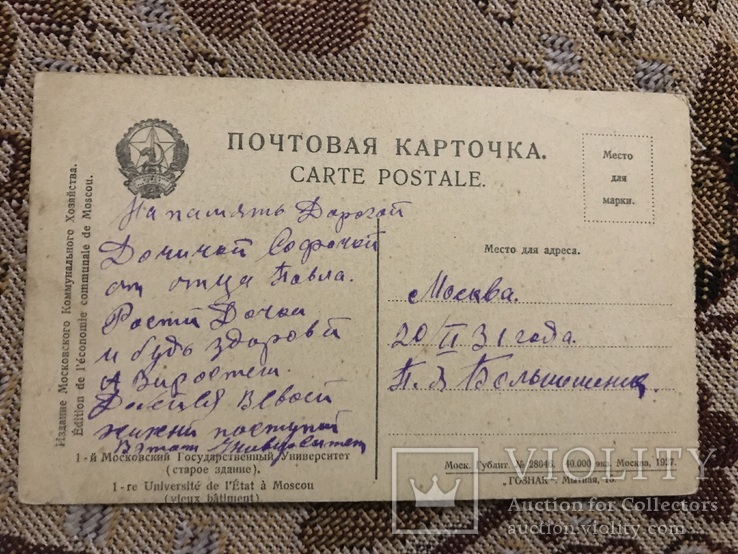 ПОЧТОВАЯ КАРТОЧКА.
CARTE POSTALE.
Место
для
марки.
Издание Московского Коммунального Хозяйства.
Édition de l'économie communale de Moscou.
На память Дорогой
Дочичкой Софочкой
от отца Павла.
Рости Дочка
и будь здорова
А Виростеш.
жизни поступай
В этот Университет
Место для адреса.
Москва.
20/II 31 года.
П. З
1-й Московский Государственный Университет
(старое здание).
1-re Université de l'État à Moscou
(vieux bâtiment).
Моск. Гублит. № 28046. 40.000 экз. Москва, 1927.
"ГОЗНАК". Мытная, 18.
VIOLITY
Auction for Collectors
auction.violity.com